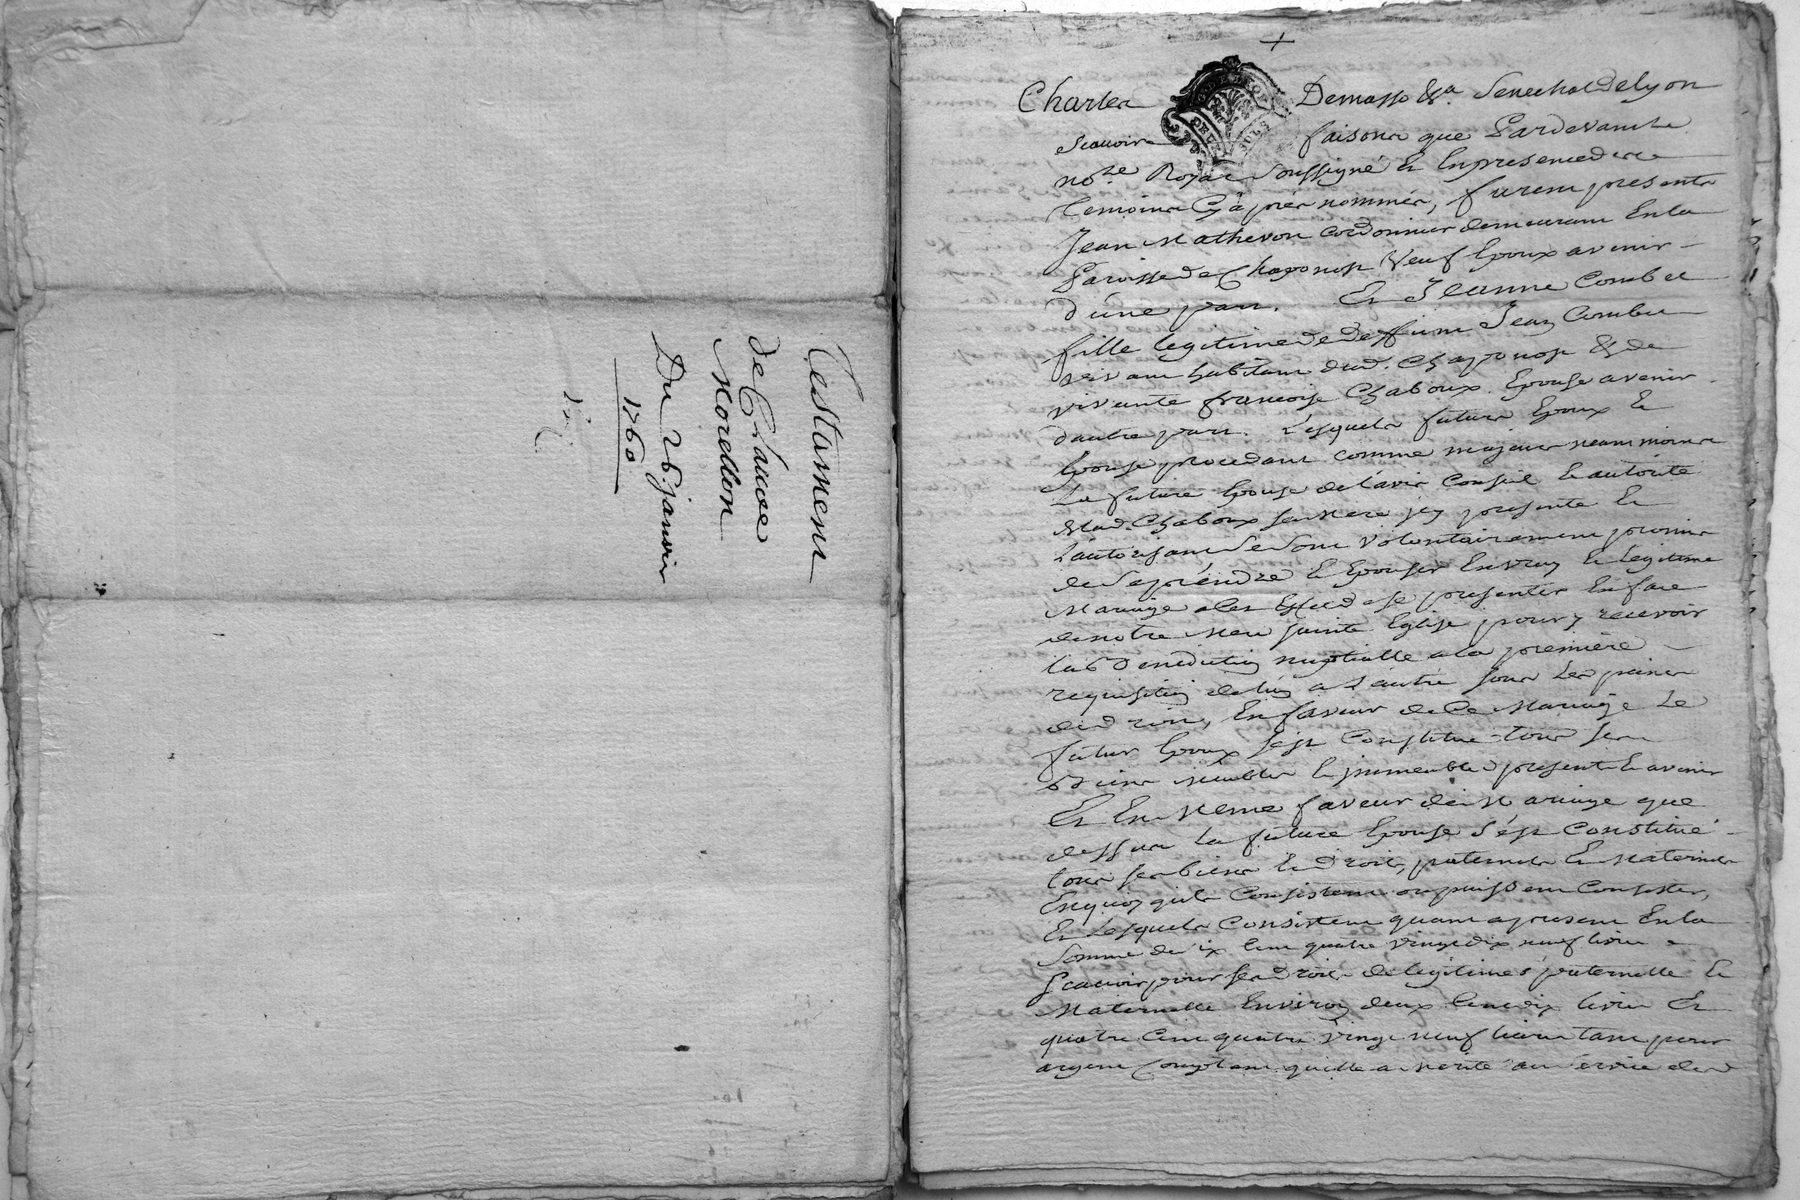 Testament
de Claude
Morellon
Du 26 janvier
1760
Charles Demasso &a Senechal de Lyon
scavoir faisons que Pardevant Le
no.re Royal soussigné Et En presence des
temoins Cy apres nommés, furent presents
Jean Mathevon cordonnier demeurant En la
Paroisse de Chaponost Veuf Epoux avenir
d'une part. Et Jeanne Combet
fille legitime de deffunt Jean Combet
vivant habitant dud. Chaponost & de
vivante francoise Chaboux. Epouse avenir
dautre part. Lesquels futurs Epoux Et
Epouse procedant comme majeurs neammoins
La future Epouse de l'avis Conseil Et autorité
de lad. Chaboux sa mere icy presente Et
L'autorisant Se Sont volontairement promis
de Se prendre Et Epouser En vray Et Legitime
Mariage a ces Effets de se presenter En face
de notre mere sainte Eglise pour y recevoir
la Benediction nuptialle a la premiere
requisition de l'un a L'autre sous Les peines
de droit, En faveur de Ce Mariage Le
futur Epoux s'est Constitué tous ses
Biens meubles Et immeubles presents Et avenir
Et En Meme faveur de Mariage que
dessus La future Epouse s'est Constitué
tous ses biens Et Droits, paternels Et Maternels
En quoy qu'ils Consistent ou puissent Consister,
Et Lesquels Consistent quant a present En la
Somme de six Cent quatre vingt dix neuf livres
Scavoir pour ses Droits de legitimes paternelle Et
Maternelle Environ deux Cent dix livres Et
quatre Cent quatre Vingt neuf livres tant pour
argent Comptant quelle a merité au service de